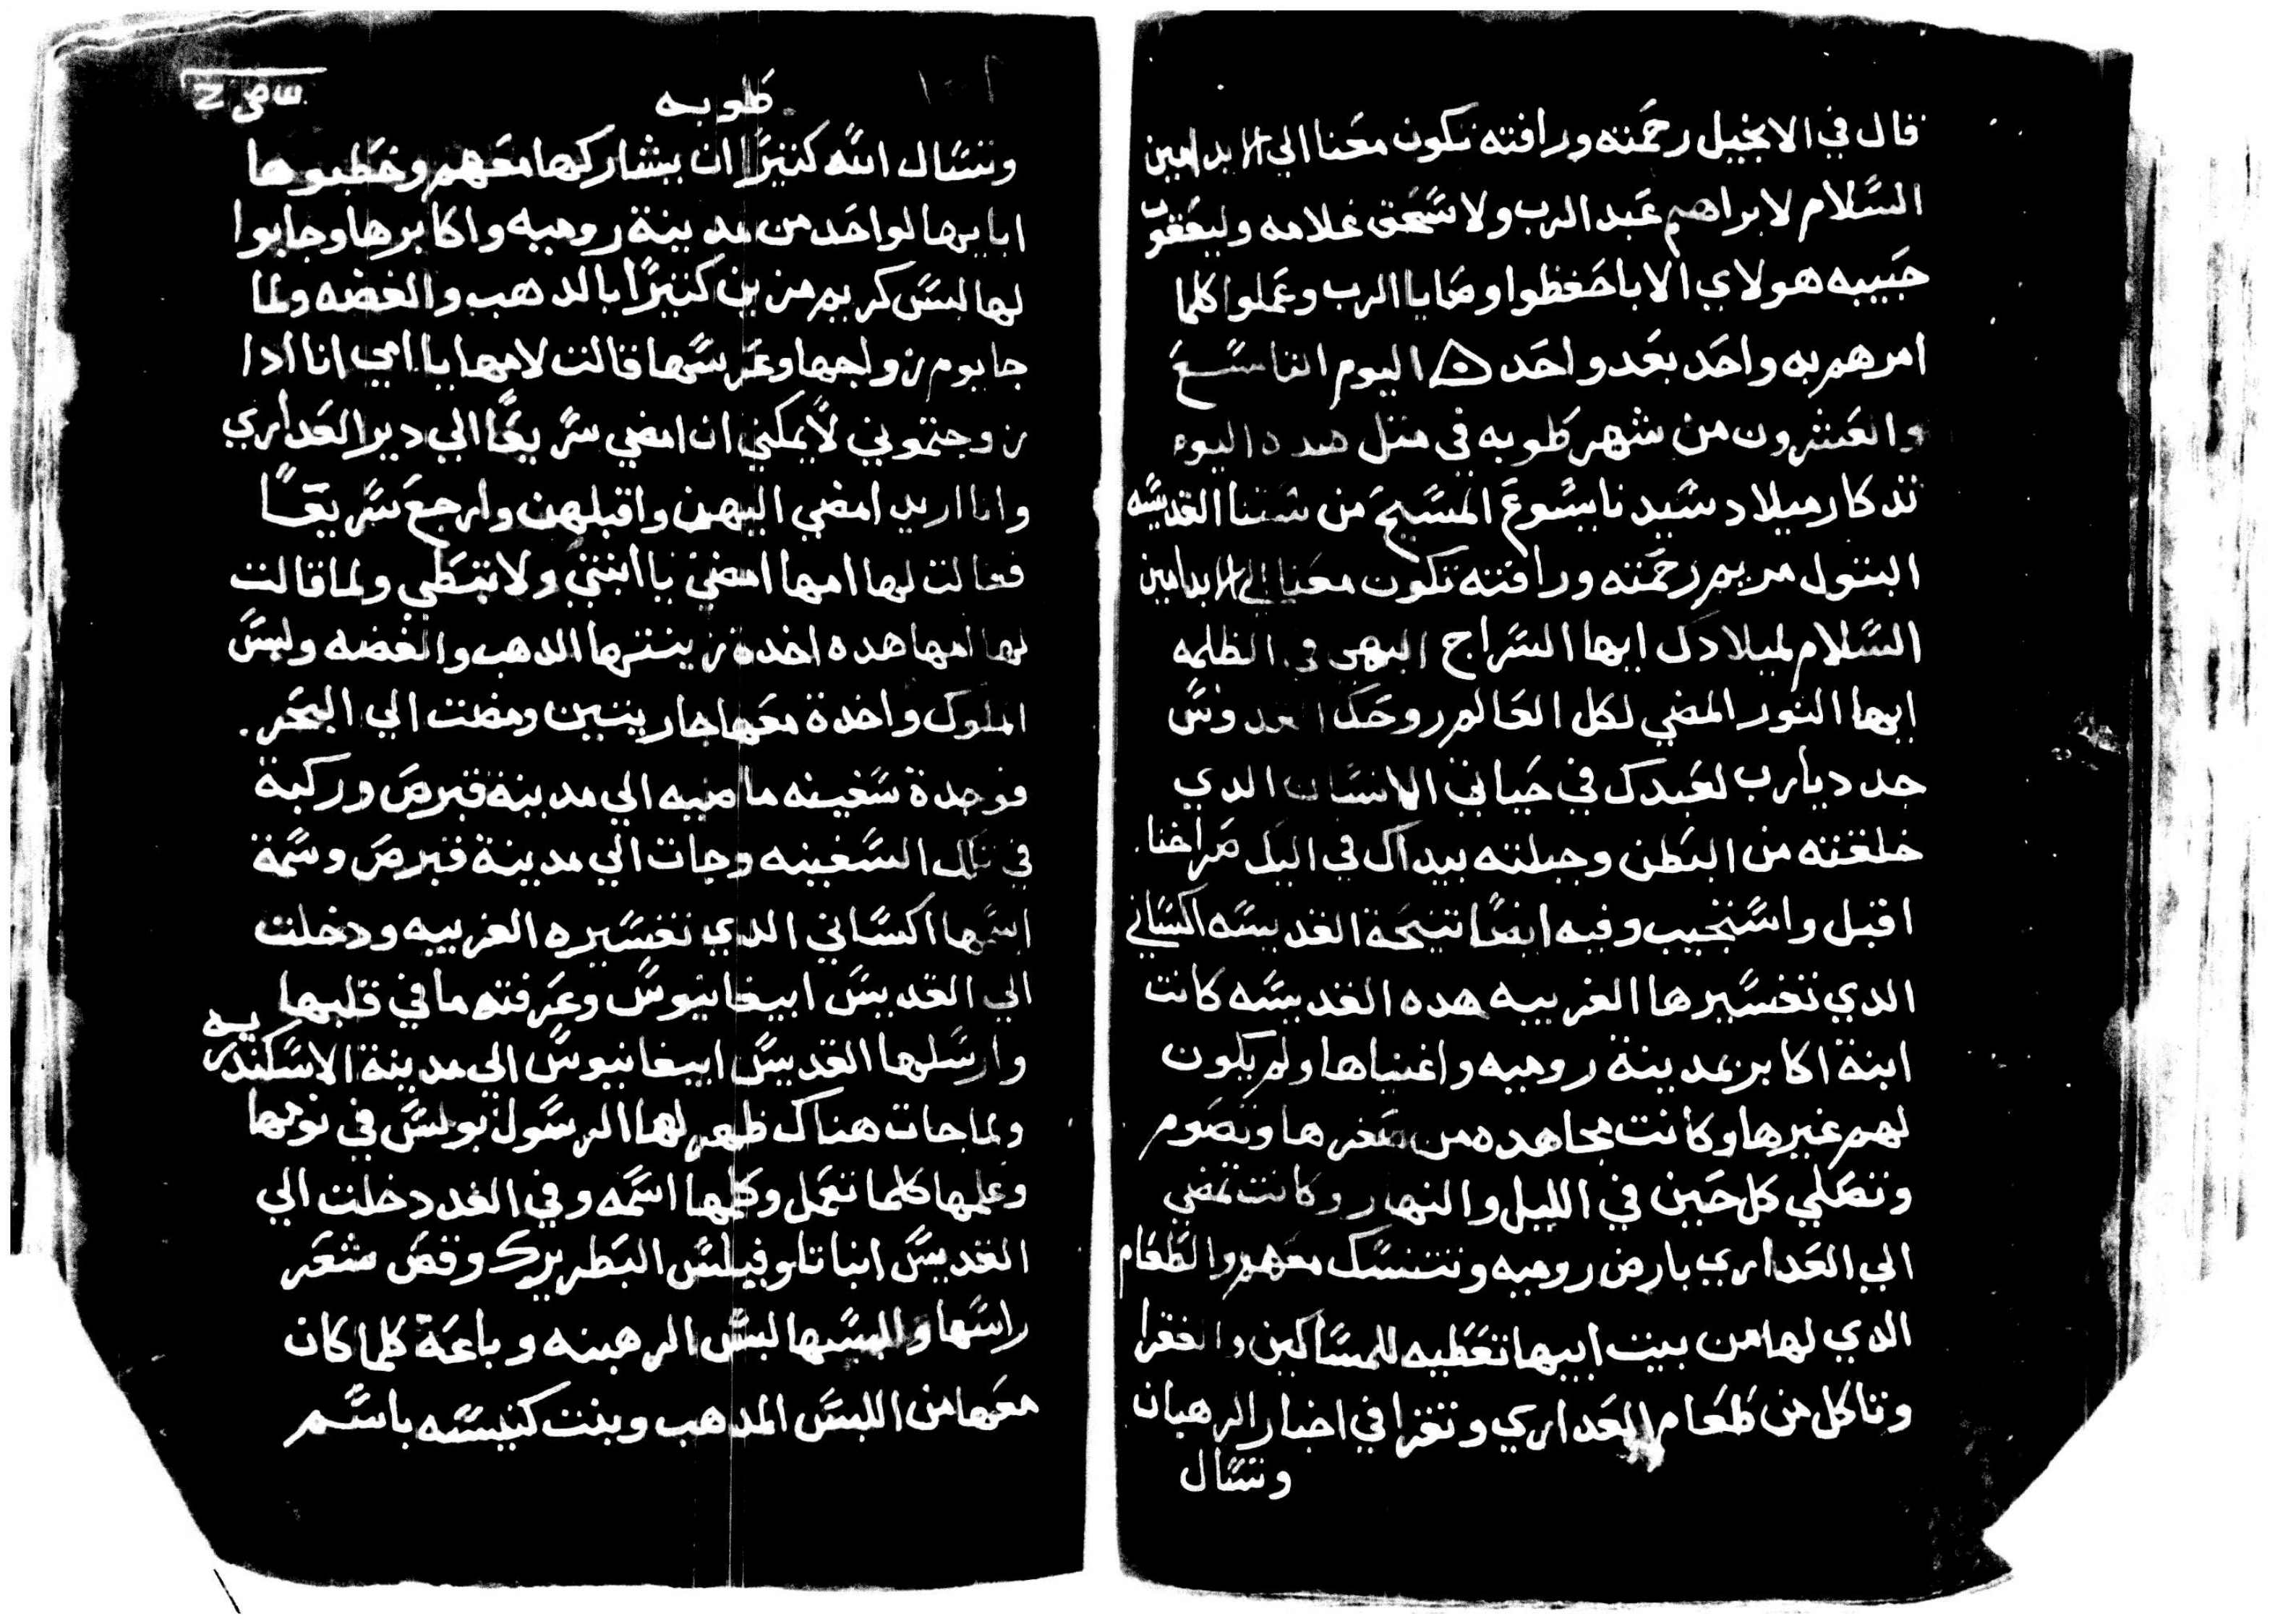 قال في الانجيل رحمته ورافته تكون معنا الي الابد امين
السلام لابراهيم عبد الرب ولاسحق غلامه وليعقوب
حبيبه هولاي الابا حفظوا وصايا الرب وعملوا كلما
امرهم به واحد بعد واحد ۞ اليوم التاسع
والعشرون من شهر طوبه في مثل هده اليوم
تدكار ميلاد سيدنا يسوع المسيح من ستنا القديسه
البتول مريم رحمته ورافته تكون معنا الي الابد امين
السلام لميلادك ايها السراج البهي في الظلمه
ايها النور المضي لكل العالم روحك القدوس
جدد يارب لعبدك في حياتي الانسان الدي
خلقته من البطن وجبلته بيداك في اليل صراخنا
اقبل واستجيب وفيه ايضا نتيحة القديسه اكساني
الدي تفسيرها الغريبه هده القديسه كانت
ابنة اكابر مدينة روميه واغنياها ولم يكون
لهم غيرها وكانت مجاهده من صغرها وتصوم
وتصلي كل حين في الليل والنهار وكانت تمضي
الي العداري بارض روميه وتتنسك معهم والطعام
الدي لها من بيت ابيها تعطيه للمساكين والفقرا
وتاكل من طعام العداري وتقرا في اخبار الرهبان
وتسال
طوبه
وتسال الله كتيرا ان يشاركها معهم وخطبوها
ابايها لواحد من مدينة روميه واكابرها وجابوا
لها لبس كريم مزين كتيرا بالدهب والفضه ولما
جا يوم زواجها وعرسها قالت لامها يا امي انا ادا
زوجتموني لا يمكني ان امضي سريعا الي دير العداري
وانا اريد امضي اليهن واقبلهن وارجع سريعا
فقالت لها امها امضي يا ابنتي ولا تبطي ولما قالت
لها امها هده اخدة زينتها الدهب والفضه ولبس
الملوك واخدة معها جاريتين ومضت الي البحر.
فوجدة سفينه ماضيه الي مدينة قبرص وركبة
في تلك السفينه وجات الي مدينة قبرص وسمة
اسمها اكساني الدي تفسيره الغريبه ودخلت
الي القديس ابيفانيوس وعرفته ما في قلبها
وارسلها القديس ابيفانيوس الي مدينة الاسكندريه
ولما جات هناك ظهر لها الرسول بولس في نومها
وعلمها كلما تعمل وكلمها اسمه وفي الغد دخلت الي
القديس انبا تاوفيلس البطريرك وقص شعر
راسها والبسها لبس الرهبنه وباعة كلما كان
معها من اللبس المدهب وبنت كنيسه باسم